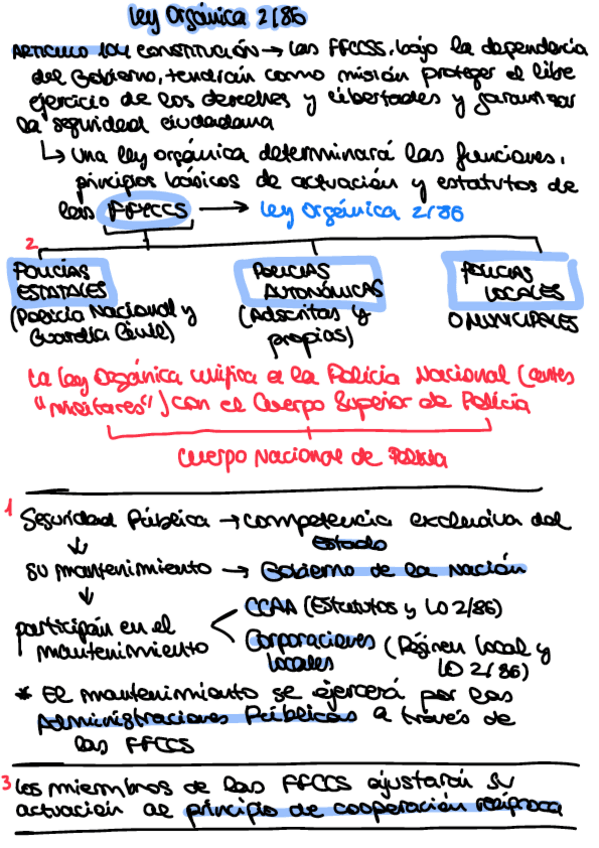 Ley Orgánica 2/86
ARTICULO 104 CONSTITUCIÓN → Las FFCCSS, bajo la dependencia
del Gobierno, tendrán como misión proteger el libre
ejercicio de los derechos y libertades y garantizar
la seguridad ciudadana
↳ Una ley orgánica determinará las funciones,
principios básicos de actuación y estatutos de
las FFYCCS → Ley Orgánica 2/86
2
POLICÍAS ESTATALES
(Policía Nacional y Guardia Civil)
POLICIAS AUTONÓMICAS
(Adscritas y propios)
POLICIAS LOCALES
O MUNICIPALES
La Ley Orgánica unifica a la Policía Nacional (antes
"militares") con el Cuerpo Superior de Policía
Cuerpo Nacional de Policía
1 Seguridad Pública → competencia exclusiva del
Estado
↓
su mantenimiento → Gobierno de la Nación
↓
participan en el mantenimiento
CCAA (Estatutos y LO 2/86)
Corporaciones locales (Régimen local y LO 2/86)
* El mantenimiento se ejercerá por las
Administraciones Públicas a través de
las FFCCS
3 Los miembros de las FFCCS ajustarán su
actuación al principio de cooperación recíproca